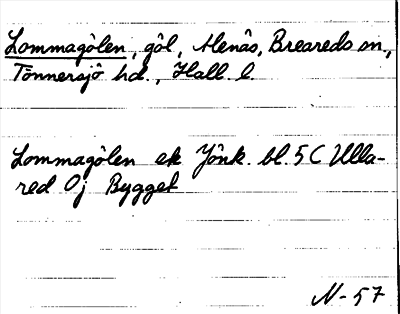 Lommagölen, göl, Alenäs, Breareds sn.,
Tönnersjö hd., Hall. l.
Lommagölen ek Jönk. bl. 5 C Ulla-
red Oj Bygget
N-57